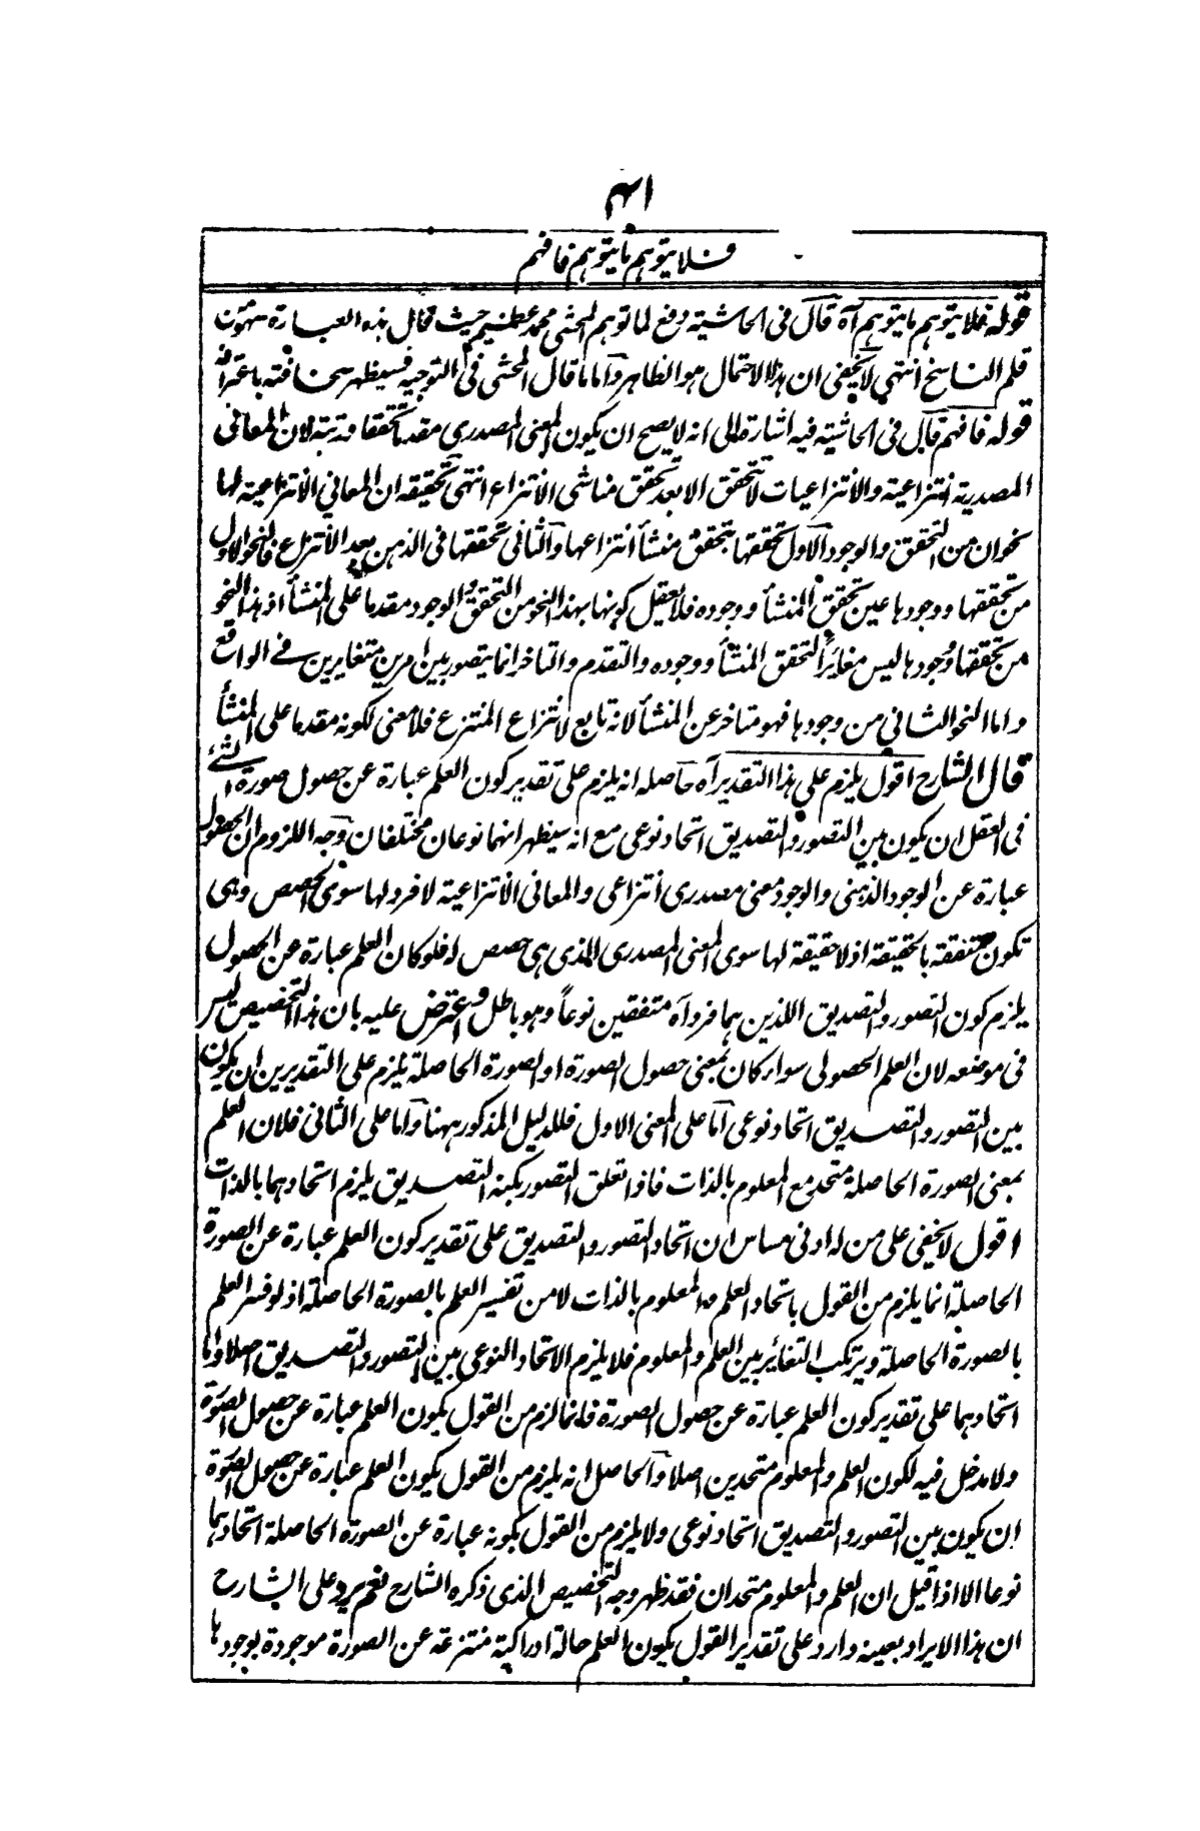 ۴۱
فلا يتوهم ما يتوهم فافهم
قوله فلا يتوهم ما يتوهم آه قال فى الحاشية دفع لما توهم المحشى محمد عظيم حيث قال هذه العبارة سهو من
قلم الناسخ انتهى لا يخفى ان هذا الاحتمال هو الظاهر وأما ما قال المحشى فى التوجيه فسيظهر سخافته باعترافه
قوله فافهم قال فى الحاشية فيه اشارة الى انه لا يصح ان يكون المعنى المصدرى مقدما تحققا ورتبة لان المعانى
المصدرية انتزاعية والانتزاعيات لا تتحقق الا بعد تحقق مناشى الانتزاع انتهى تحقيقه ان المعاني الانتزاعية لها
نحوان من التحقق والوجود الاول تحققها بتحقق منشأ انتزاعها والثانى تحققها فى الذهن بعد الانتزاع فالنحو الاول
من تحققها ووجودها عين تحقق المنشأ ووجوده فلا يعقل كونها بهذا النحو من التحقق والوجود مقدما على المنشأ اذ هذا النحو
من تحققها ووجودها ليس مغايرًا لتحقق المنشأ ووجوده والتقدم والتاخر انما يتصور بين امرين متغايرين فے الواقع
واما النحو الثانى من وجودها فهو متاخر عن المنشأ لانه تابع لانتزاع المنتزع فلا معنى لكونه مقدما على المنشأ
قال الشارح اقول يلزم على هذا التقدير آه حاصله انه يلزم على تقدير كون العلم عبارة عن حصول صورة الشئے
فى العقل ان يكون بين التصور والتصديق اتحاد نوعى مع انه سيظهر انهما نوعان مختلفان وجه اللزوم ان الحصول
عبارة عن الوجود الذهنى والوجود معنى مصدرى انتزاعى والمعانى الانتزاعية لا فرد لها سوى الحصص وهى
تكون متفقة بالحقيقة اذ لا حقيقة لها سوى المعنى المصدرى الذى هى حصص له فلو كان العلم عبارة عن الحصول
يلزم كون التصور والتصديق اللذين هما فرداه متفقين نوعاً وهو باطل واعترض عليه بان هذا التخصيص ليس
فى موضعه لان العلم الحصولى سواء كان بمعنى حصول الصورة او الصورة الحاصلة يلزم على التقديرين ان يكون
بين التصور والتصديق اتحاد نوعى أما على المعنى الاول فللدليل المذكور ههنا وأما على الثانى فلان العلم
بمعنى الصورة الحاصلة متحد مع المعلوم بالذات فاذا تعلق التصور بكنه التصديق يلزم اتحادهما بالذات
اقول لا يخفى على من له ادنى مساس ان اتحاد التصور والتصديق على تقدير كون العلم عبارة عن الصورة
الحاصلة انما يلزم من القول باتحاد العلم والمعلوم بالذات لا من تفسير العلم بالصورة الحاصلة اذ لو فسر العلم
بالصورة الحاصلة ويرتكب التغائر بين العلم والمعلوم فلا يلزم الاتحاد النوعى بين التصور والتصديق اصلا واما
اتحادهما على تقدير كون العلم عبارة عن حصول الصورة فانما لزم من القول بكون العلم عبارة عن حصول الصورة
ولا مدخل فيه لكون العلم والمعلوم متحدين اصلا والحاصل انه يلزم من القول بكون العلم عبارة عن حصول الصورة
ان يكون بين التصور والتصديق اتحاد نوعى ولا يلزم من القول بكونه عبارة عن الصورة الحاصلة اتحادهما
نوعا الا اذا قيل ان العلم والمعلوم متحدان فقد ظهر وجه التخصيص الذى ذكره الشارح نعم يرد على الشارح
ان هذا الايراد بعينه وارد على تقدير القول بكون العلم حالة ادراكية منتزعة عن الصورة موجودة بوجودها